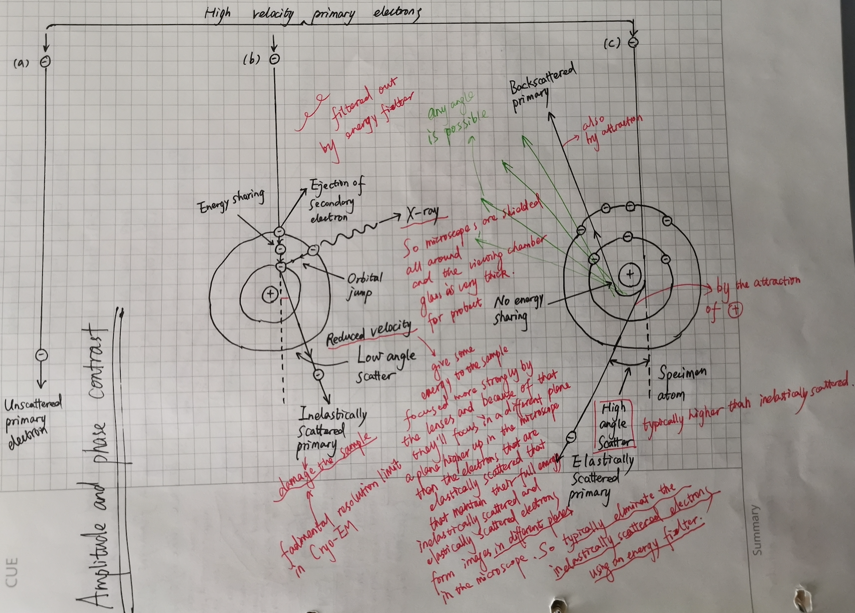 High velocity primary electrons
(a)
(b)
(c)
Unscattered
primary
electron
filtered out
by energy fielter
Energy sharing
Ejection of
secondary
electron
X-ray
Orbital
jump
Reduced velocity
Low angle
scatter
Inelastically
scattered
primary
damage the sample
fadmental resolution limit
in Cryo-EM
So microscopes are shielded
all around
and the viewing chamber
glass is very thick.
for product
give some
energy to the sample
focused more strongly by
the lenses and because of that
they'll focus in a different plane
a plane higher up in the microscope
than the electrons that are
elastically scattered that
that maintain their full energy
inelastically scattered and
elastically scattered electrons
form images in different planes
in the microscope. So typically eliminate the
inelastically scattered electrons
using an energy fielter.
any angle
is possible
Backscattered
primary
also
by attraction
No energy
sharing
by the attraction
of +
Specimen
atom
High
angle
Scatter
typically higher than inelastically scattered.
Elastically
Scattered
primary
Amplitude and phase contrast
CUE
Summary